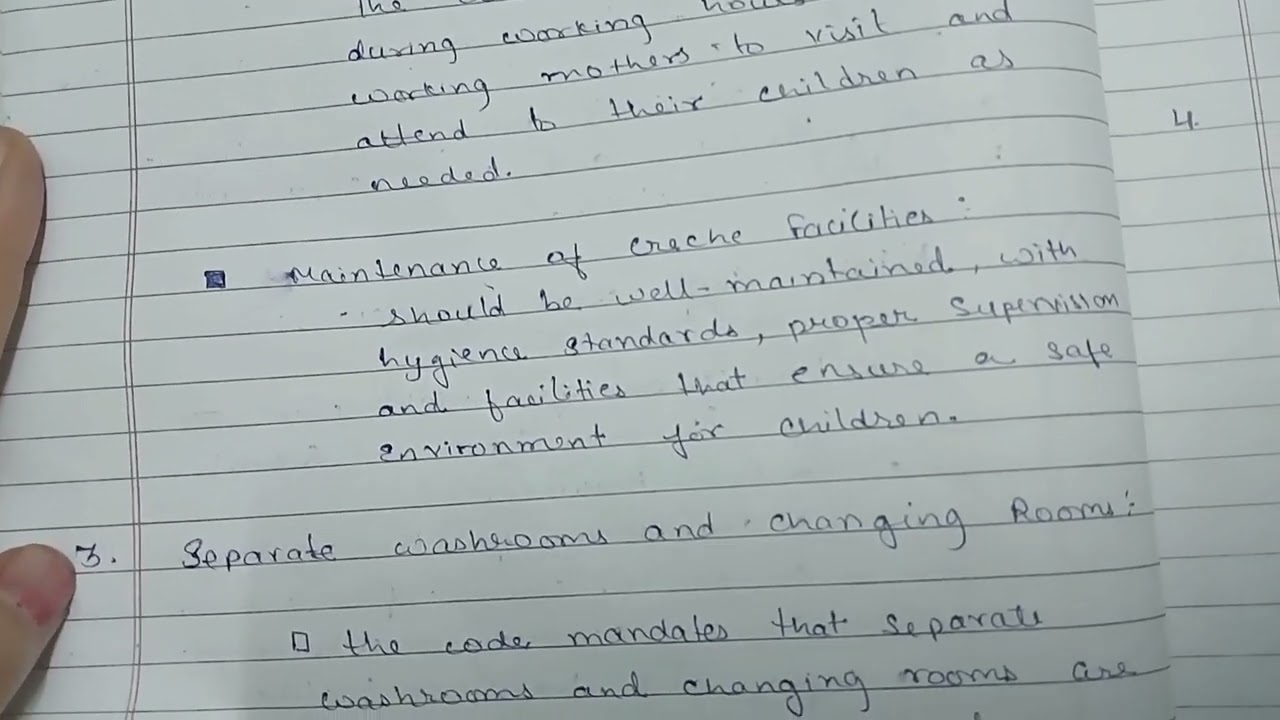 The
during working hou
working mothers to visit and
attend to their children as
needed.
4.
Maintenance of creche facilities:
should be well-maintained, with
hygience standards, proper supervision
and facilities that ensure a safe
environment for children.
3. Separate washrooms and changing Rooms:
the code mandates that separate
washrooms and changing rooms are